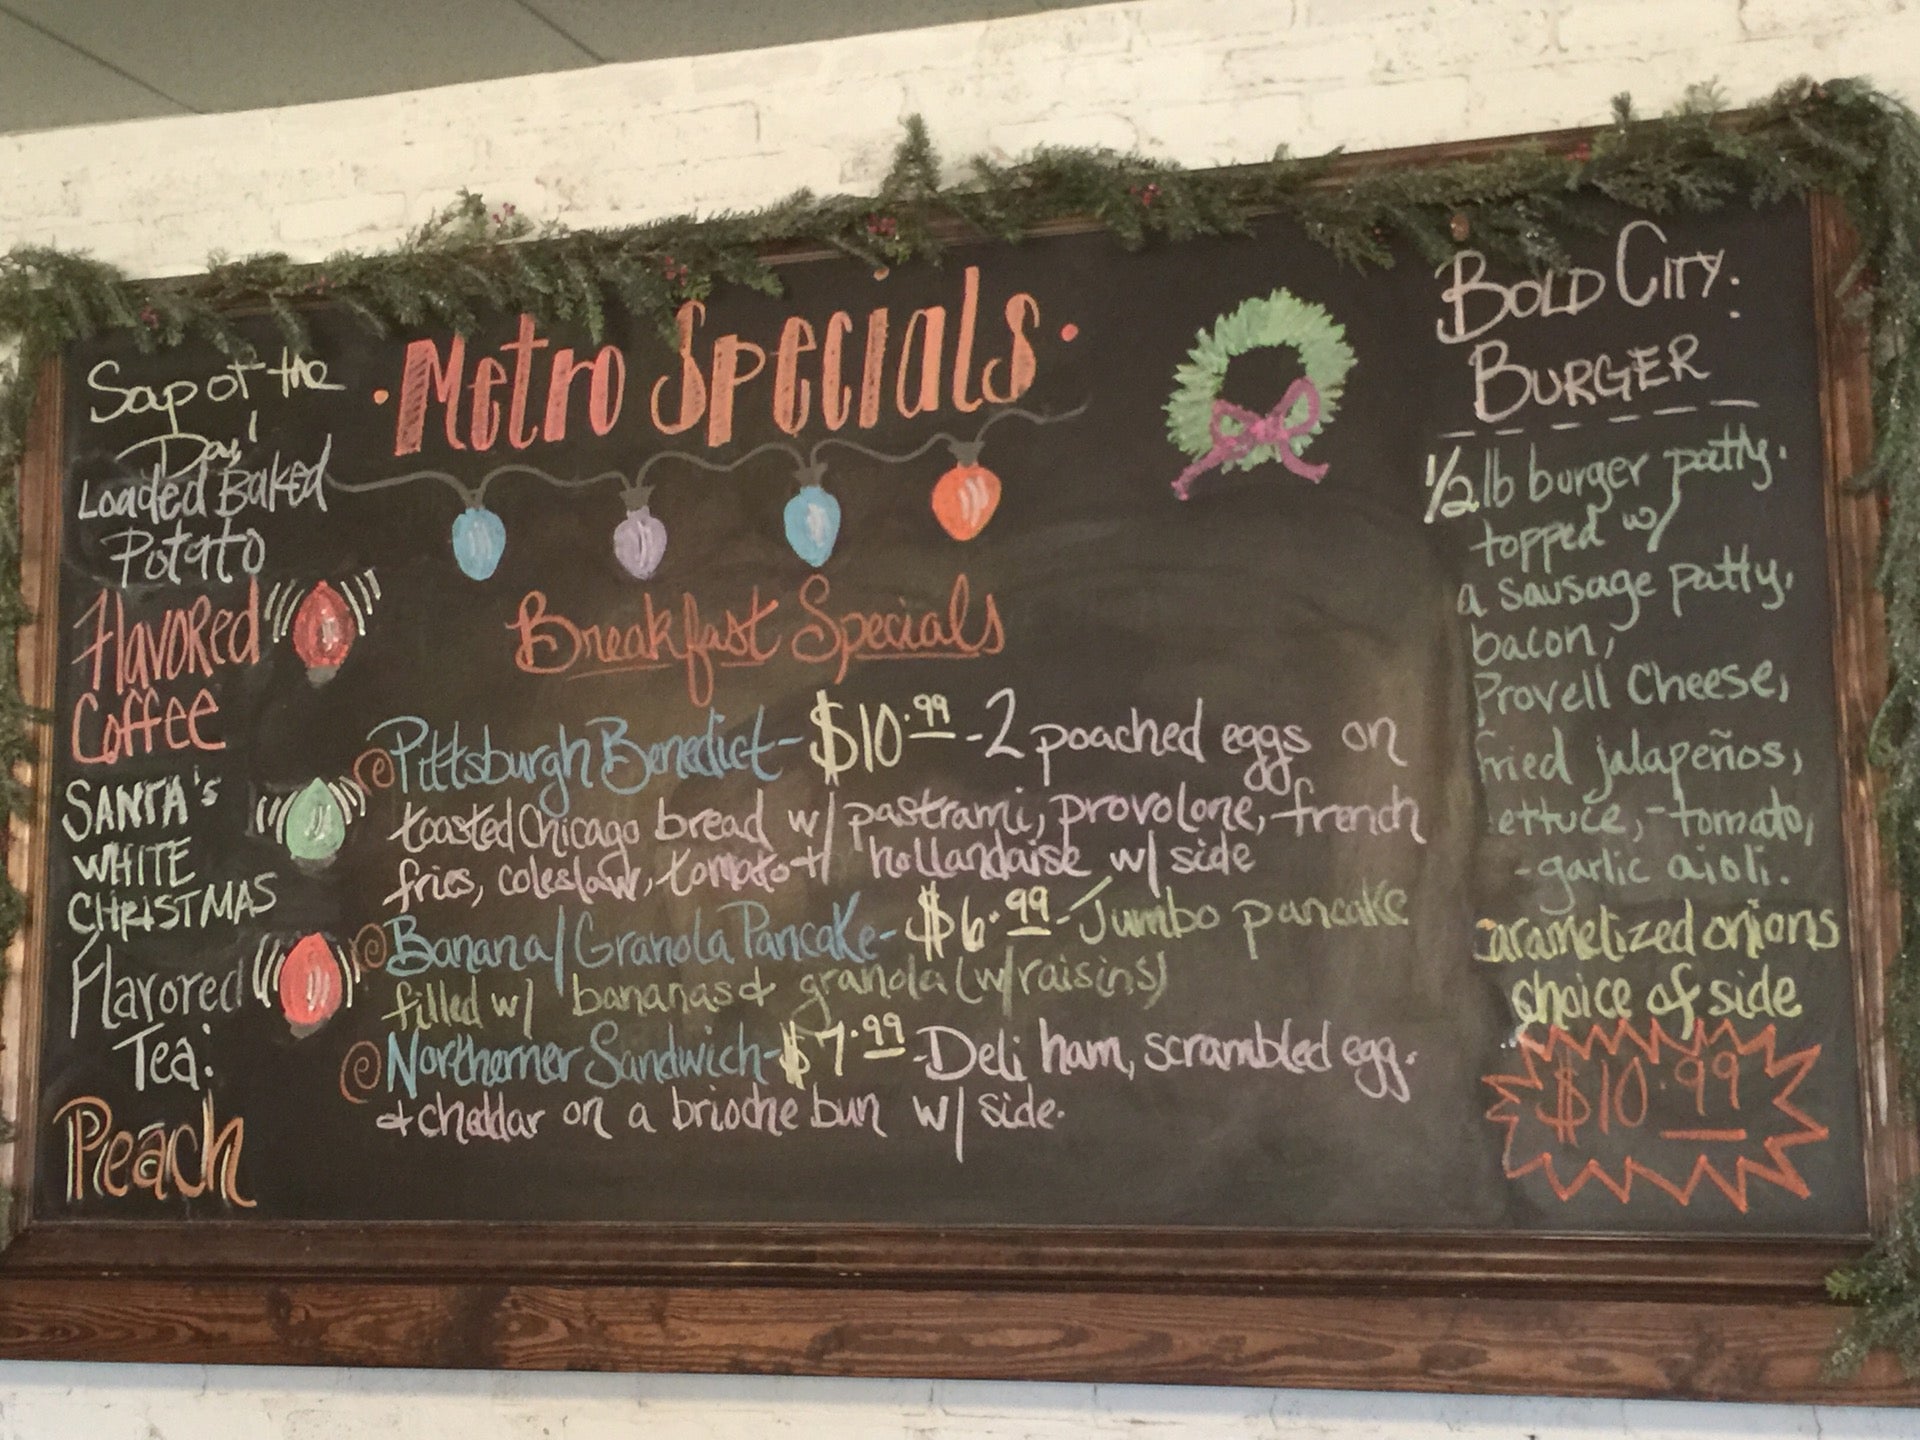 Soup of the
Day!
Loaded Baked
Potato
Flavored
Coffee
SANTA's
WHITE
CHRISTMAS
Flavored
Tea:
Peach
· Metro Specials ·
Breakfast Specials
Pittsburgh Benedict - $10.99 - 2 poached eggs on
toasted Chicago bread w/ pastrami, provolone, french
fries, coleslaw, tomato + hollandaise w/ side
Banana/Granola Pancake - $6.99 - Jumbo pancake
filled w/ bananas & granola (w/raisins)
Northerner Sandwich - $7.99 - Deli ham, scrambled egg.
& cheddar on a brioche bun w/ side.
BOLD CITY:
BURGER
1/2 lb burger patty.
topped w/
a sausage patty,
bacon,
Provell Cheese,
fried jalapeños,
lettuce, - tomato,
- garlic aioli.
caramelized onions
choice of side
$10.99